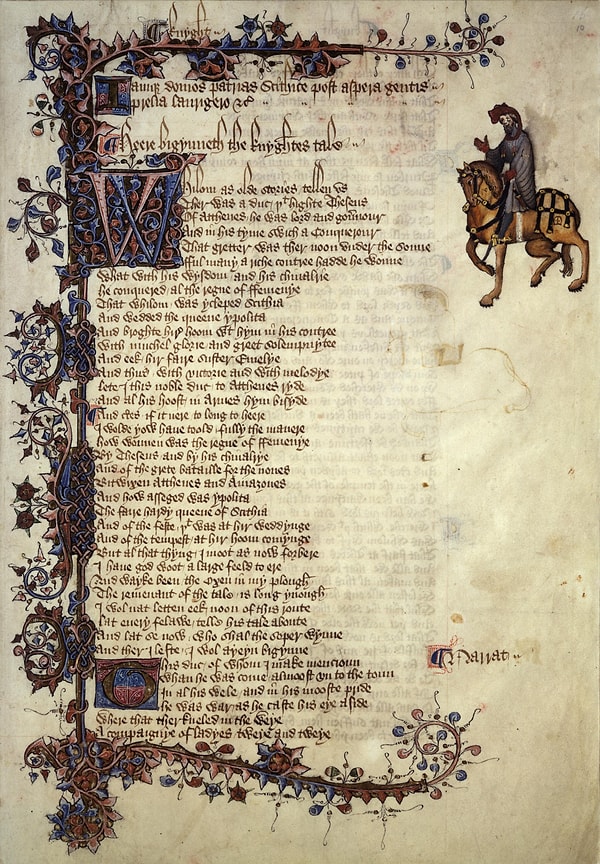 Knyght
10
Iamq domos patrias Scithice post aspera gentis
prelia laurigero &c
Heere bigynneth the knyghtes tale
Whilom as olde stories tellen vs
Ther was a duc þt highte Theseus
Of Atthenes he was lord and gouernour
And in his tyme swich a Conquerour
That gretter was ther noon vnder the sonne
fful many a riche contree hadde he wonne
What with his wysdom and his chiualrie
He conquered al the regne of ffemenye
That whilom was ycleped Scithia
And wedded the queene ypolita
And broghte hir hoom wt hym in his contree
With muchel glorie and greet solempnytee
And eek hir faire suster Emelye
And thus with victorie and with melodye
Lete I this noble duc to Atthenes ryde
And al his hoost in Armes hym bisyde
And certes if it nere to long to heere
I wolde yow haue toold fully the manere
How wonnen was the regne of ffemenye
By Theseus and by his chiualrye
And of the grete bataille for the nones
Bitwixen Atthenes and Amazones
And how asseged was ypolita
The faire hardy queene of Scithia
And of the feste þt was at hir weddynge
And of the tempest at hir hoom comynge
But al that thyng I moot as now forbere
I haue god woot a large feeld to ere
And wayke been the Oxen in my plough
The remenant of the tale is long ynough
I wol nat letten eek noon of this route
Lat euery felawe telle his tale aboute
And lat se now who shal the soper wynne
And ther I lefte I wol ayeyn bigynne
Narrat
This duc of whom I make mencioun
Whan he was come almoost vn to the toun
In al his wele and in his mooste pride
He was war as he caste his eye aside
Where that ther kneled in the weye
A compaignye of ladyes tweye and tweye